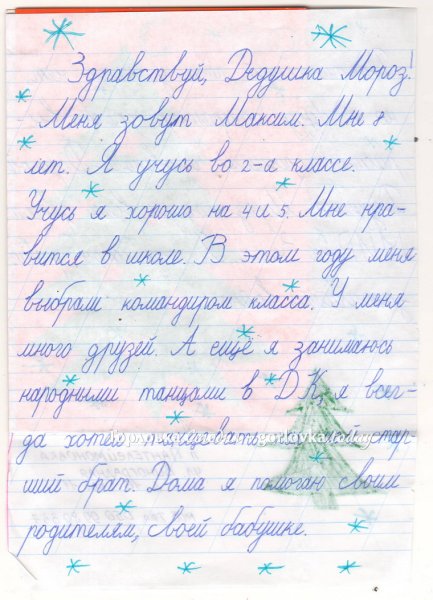 Здравствуй, Дедушка Мороз!
Меня зовут Максим. Мне 8
лет. Я учусь во 2-а классе.
Учусь я хорошо на 4 и 5. Мне нра-
вится в школе. В этом году меня
выбрали командиром класса. У меня
много друзей. А ещё я занимаюсь
народными танцами в ДК, я всег-
да хотел танцевать мой стар
ший брат. Дома я помогаю своим
родителям, своей бабушке.